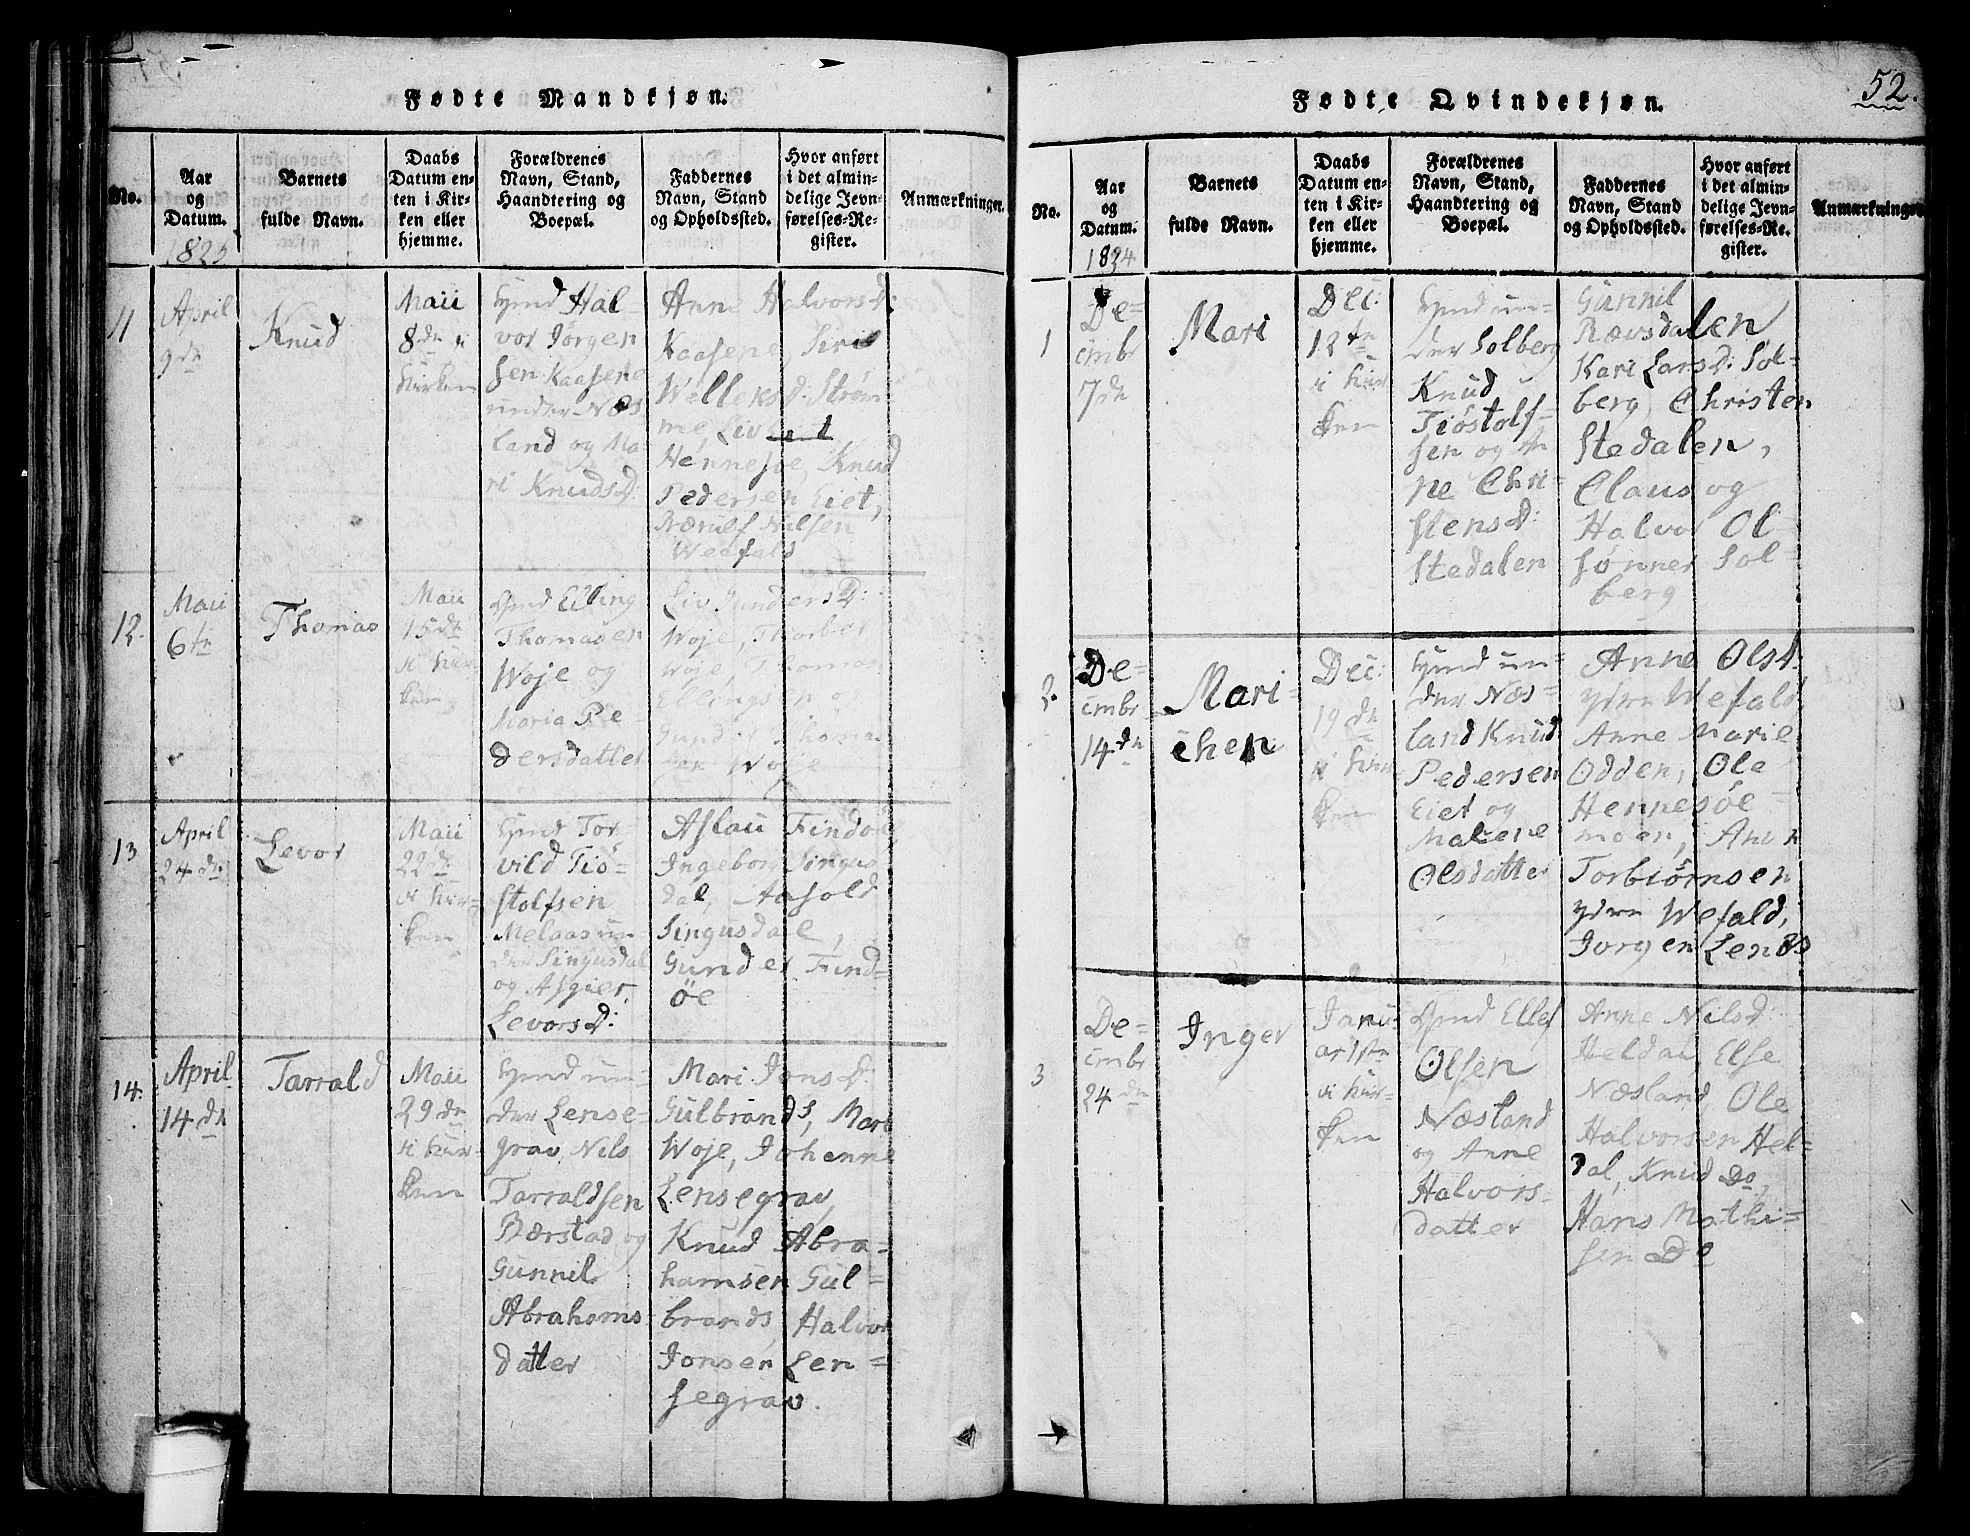 Fødte Mandkjøn.
No.
Aar
og
Datum.
1825
Barnets
fulde Navn.
Daabs
Datum en-
ten i Kir-
ken eller
hjemme.
Forældrenes
Navn, Stand,
Haandtering og
Boepæl.
Faddernes
Navn, Stand
og Opholdssted.
Hvor anført
i det almin-
delige Jevn-
førelses-Re-
gister.
Anmærkninger.
11
April
9de
Knud
Maii
8de i
Kirken
Hal-
vor Jørgen
sen Kaasene
under Næs
land og Ma-
ri Knudsd:
Anne Halvorsd:
Kaasene, Siri
Welleksd: Strøm
me, Liv
Hennesøe, Knud
Pedersen Eiet,
Nilsen
Weefald
12.
Maii
6te
Thomas
Maii
15de
i Kir-
ken
Elling
Thomasen
Woje og
Maria Pe-
dersdatter
Liv Gundersd:
Woje, Thorber
Woje, Thomas
Ellingsen og
Gunder Thomas
sen Woje
13
April
24de
Levor
Maii
22de
i Kir-
ken
Tor-
vild Tiø-
stolfsen
Melaas un
der Singusdal
og Asgier
Levorsd:
Aslau Findøe
Ingeborg Singus
dal, Aasold
Singusdale,
Gunder Find-
øe
14.
April
14de
Tarrald
Maii
29de
i Kir-
ken
un-
der Lense-
grav Nils
Tarraldsen
Bærstad og
Gunnil
Abrahams
datter
Mari Jonsd:
Gulbrands, Mari
Woje, Johanne
Lensegrav,
Knud Abra-
hamsen Gul-
brands, Halvor
Jonsen Len-
segrav.
52.
Fødte Qvindekjøn.
No.
Aar
og
Datum.
1824
Barnets
fulde Navn.
Daabs
Datum en-
ten i Kir-
ken eller
hjemme.
Forældrenes
Navn, Stand,
Haandtering og
Boepæl.
Faddernes
Navn, Stand
og Opholdssted.
Hvor anført
i det almin-
delige Jevn-
førelses-Re-
gister.
Anmærkninger
1
De-
cmbr
7de
Mari
Dec:
12te
i Kir
ken
un-
der Solberg
Knud
Tiøstolf-
sen og An
ne Chri-
stensd:
Stedalen
Gunnil
Rævsdalen
Kari Larsd: Sol-
berg, Christen
Stedalen,
Claus og
Halvor Ol-
sønner Sol-
berg
2.
De-
cmbr
14de
Mari-
chen
Dec:
19de
i Kir
ken
un-
der Næs-
land Knud
Pedersen
Eiet og
Malene
Olsdatter
Anne Olsd.
ydre Wefald,
Anne Marie
Odden, Ole
Hennesøe-
moen,
Torbiørnsen
ydre Wefald,
Jorgen Lenæs
3
De-
cmbr
24de
Inger
Janu-
ar 1ste
i Kir-
ken
Ellef
Olsen
Næsland
og Anne
Halvors-
datter
Anne Nilsd:
Heldal, Else
Næsland, Ole
Halvorsen Hel-
dal, Knud Do,
Hans Mathi-
sen Do